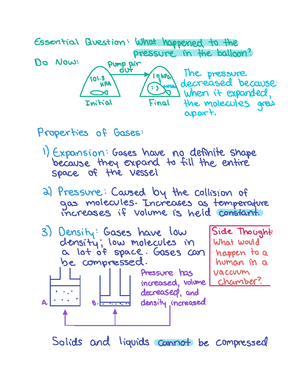 Essential Question: What happened to the
pressure in the balloon?
Do Now:
Pump air
out
101.3
kPa
10 kPa
Initial
Final
The pressure
decreased because
when it expanded,
the molecules
apart.
Properties of Gases:
1) Expansion: Gases have no definite shape
because they expand to fill the entire
space of the vessel
2) Pressure: Caused by the collision of
gas molecules. Increases as temperature
increases if volume is held constant.
3) Density: Gases have low
density; low molecules in
a lot of space. Gases can
be compressed.
Side Thought:
What would
happen to a
human in a
vaccum
chamber?
A.
B.
Pressure has
increased, volume
decreased, and
density increased
Solids and liquids cannot be compressed